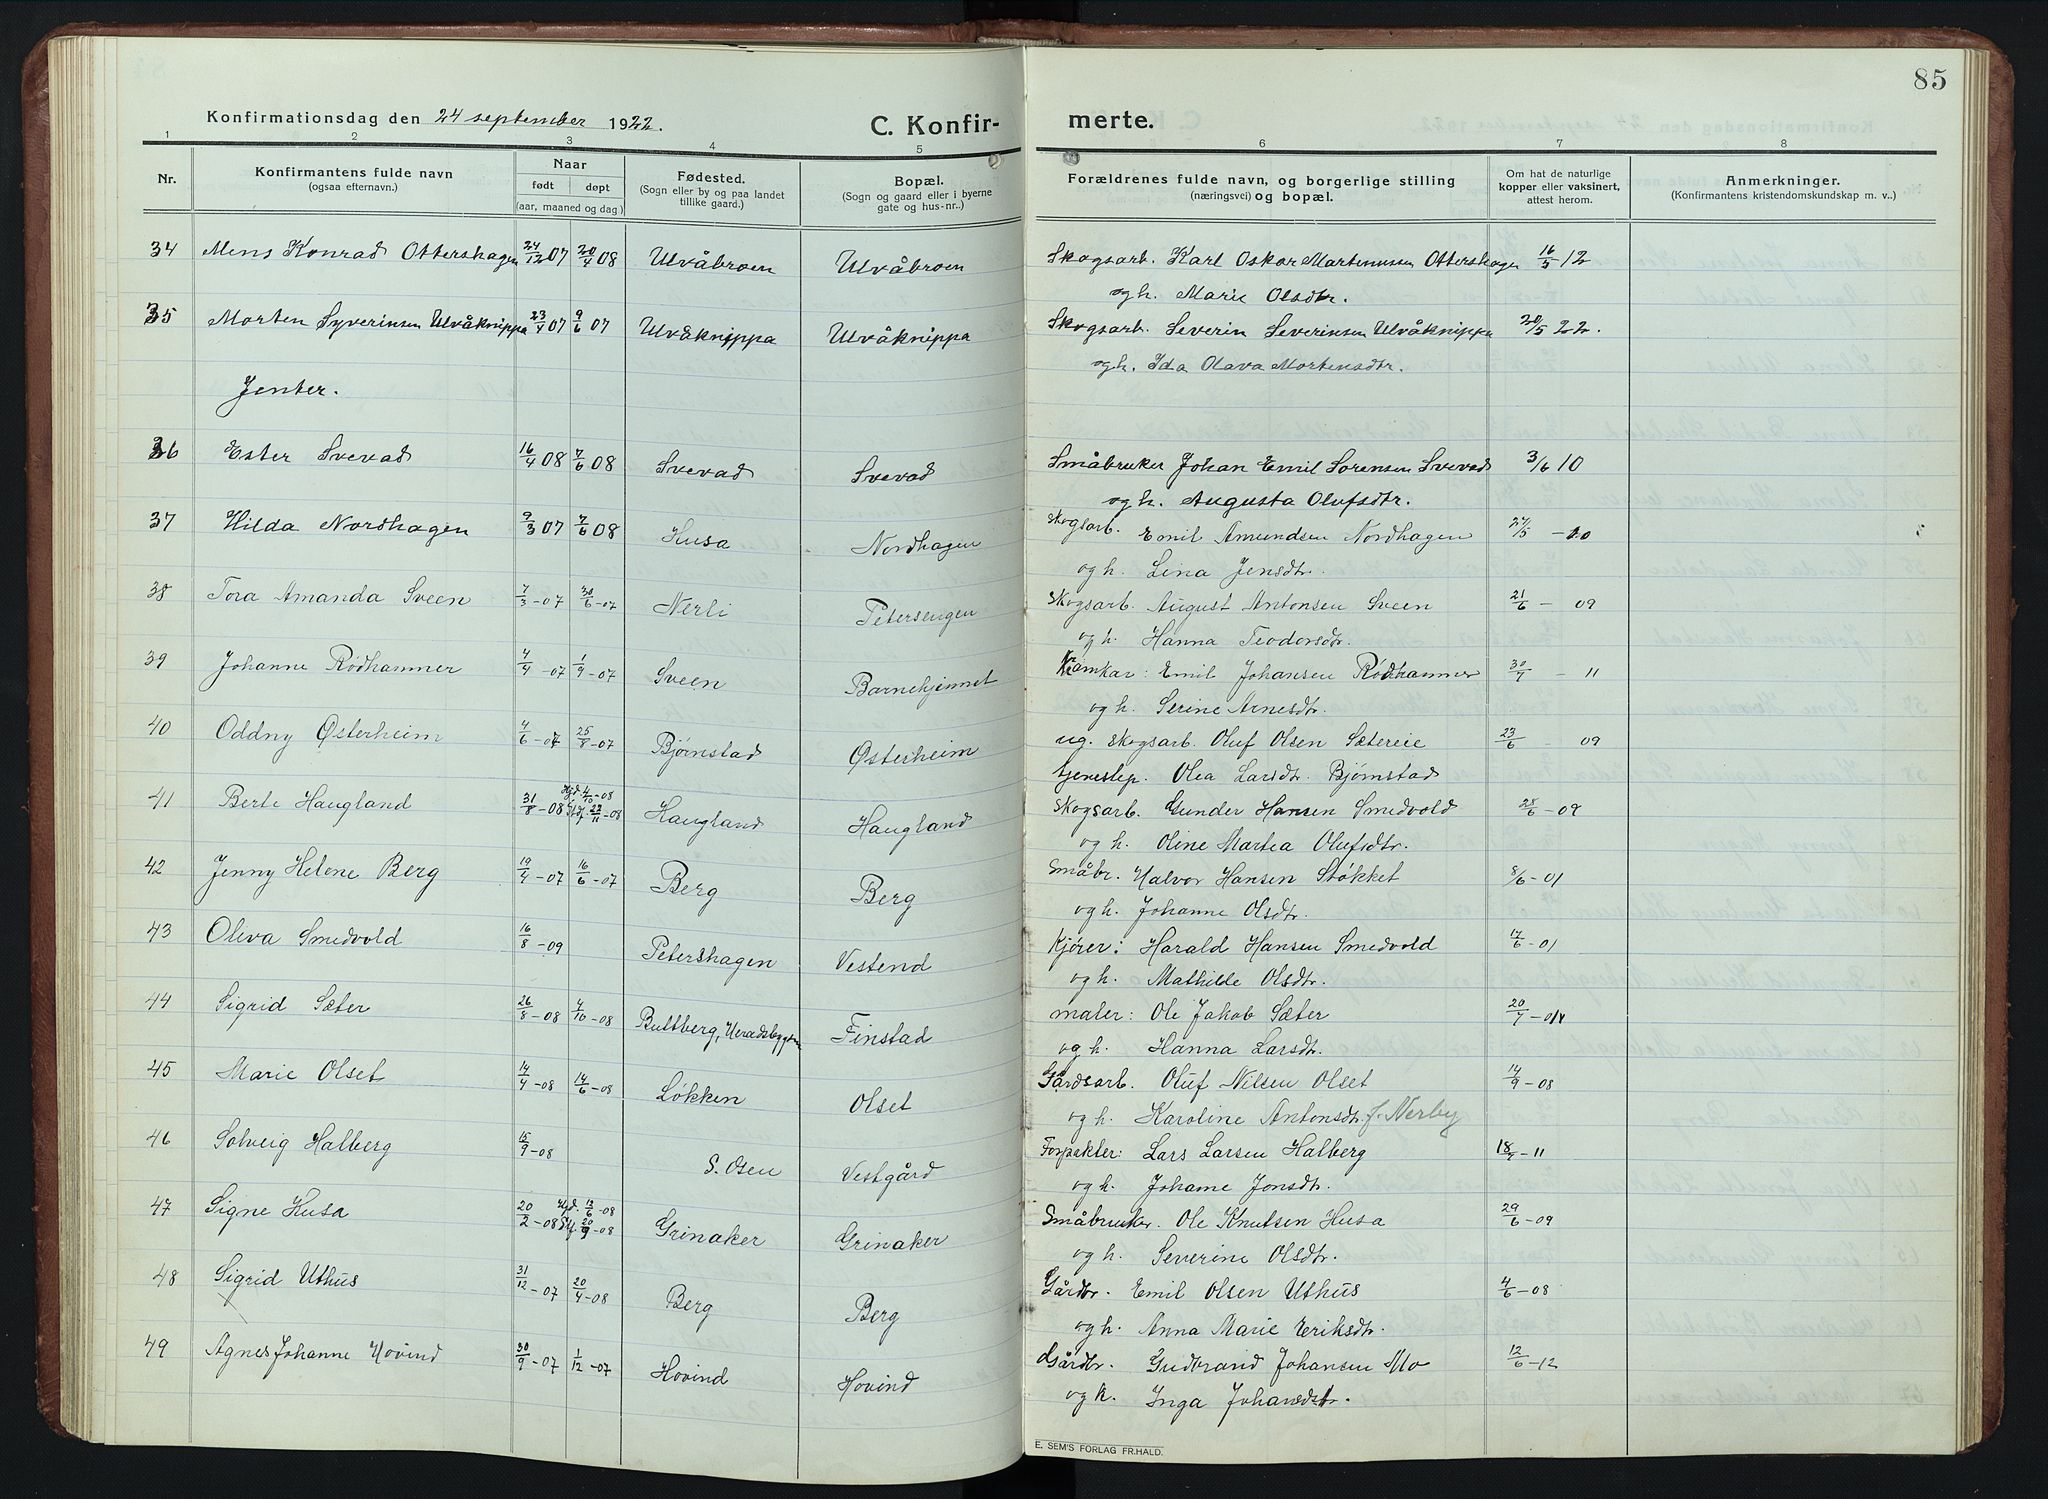 85
Konfirmationsdag den 24 september 1922. C. Konfir- merte.
1 2 3 4 5 6 7 8
Nr. Konfirmantens fulde navn (ogsaa efternavn.) Naar født døpt (aar, maaned og dag) Fødested. (Sogn eller by og paa landet tillike gaard.) Bopæl. (Sogn og gaard eller i byerne gate og hus-nr..) Forældrenes fulde navn, og borgerlige stilling (næringsvei) og bopæl. Om hat de naturlige kopper eller vaksinert, attest herom. Anmerkninger. (Konfirmantens kristendomskundskap m. v..)
34 Mens Konrad Ottershagen 24/12 07 20/4 08 Ulvåbroen Ulvåbroen Skogsarb. Karl Oskar Martenussen Ottershagen 16/5 12
og h. Marie Olsdtr.
35 Morten Syverinsen Ulvåknippa 23/4 07 9/6 07 Ulvåknippa Ulvåknippa Skogsarb. Severin Severinsen Ulvåknippa 20/5 22.
og h. Ida Olava Mortensdtr.
Jenter.
36 Ester Svevad 16/4 08 7/6 08 Svevad Svevad Småbruker Johan Emil Sorensen Svevad 3/6 10
og h. Augusta Olufsdtr.
37 Hilda Nordhagen 9/3 07 7/6 08 Husa Nordhagen Skogsarb. Emil Amundsen Nordhagen 27/5 - 20
og h. Lina Jensdtr.
38 Tora Amanda Sveen 7/3 - 07 30/6 - 07 Nerli Petersengen Skogsarb. August Antonsen Sveen 21/6 - 09
og h. Hanna Teodorsdtr.
39 Johanne Rødhammer 4/4 - 07 1/9 - 07 Sveen Barnehjemmet Kramkar: Emil Johansen Rødhammer 30/7 - 11
og h. Serine Arnesdtr.
40 Oddny Østerheim 4/6 - 07 25/8 - 07 Bjørnstad Østerheim ug. skogsarb. Oluf Olsen Sætereie 23/6 - 09
tjenestep. Olea Larsdtr. Bjørnstad
41 Berte Haugland 31/8 - 08 Hjd. 4/10 - 08 Stdf. 22/11 - 08 Haugland Haugland Skogsarb. Gunder Hansen Smedvold 28/6 - 09
og h. Oline Martea Olufsdtr.
42 Jenny Helene Berg 19/4 - 07 16/6 - 07 Berg Berg Småbr. Halvor Hansen Støkket 8/6 - 01
og h. Johanne Olsdtr.
43 Oleva Smedvold 16/8 - 09 Petershagen Vestend Kjører: Harald Hansen Smedvold 17/6 - 01
og h. Mathilde Olsdtr.
44 Sigrid Sæter 26/8 - 08 4/10 - 08 Bultberg, Heradsbygden Finstad maler: Ole Jakob Sæter 20/7 - 01
og h. Hanna Larsdtr.
45 Marie Olset 14/4 - 08 14/6 - 08 Løkken Olset Gårdsarb. Oluf Nilsen Olset 14/9 - 08
og h. Karoline Antonsdtr. f. Nerby
46 Solveig Halberg 15/9 - 08 S. Osen Vestgård Forpakter: Lars Larsen Halberg 18/7 - 11
og h. Johanne Jonsdtr.
47 Signe Husa 20/2 - 08 Hjd. 12/6 - 08 Stf. 20/9 - 08 Grinaker Grinaker Småbruker. Ole Knutsen Husa 29/6 - 09
og h. Severine Olsdtr.
48 Sigrid Uthus 31/12 - 07 20/4 - 08 Berg Berg Gårdbr. Emil Olsen Uthus 4/6 - 08
og h. Anna Marie Eriksdtr.
49 Agnes Johanne Hovind 30/9 - 07 1/12 - 07 Hovind Hovind Gårdbr. Gudbrand Johansen Mo 12/6 - 12
og h. Inga Johansdtr.
E. SEM'S FORLAG FR.HALD.